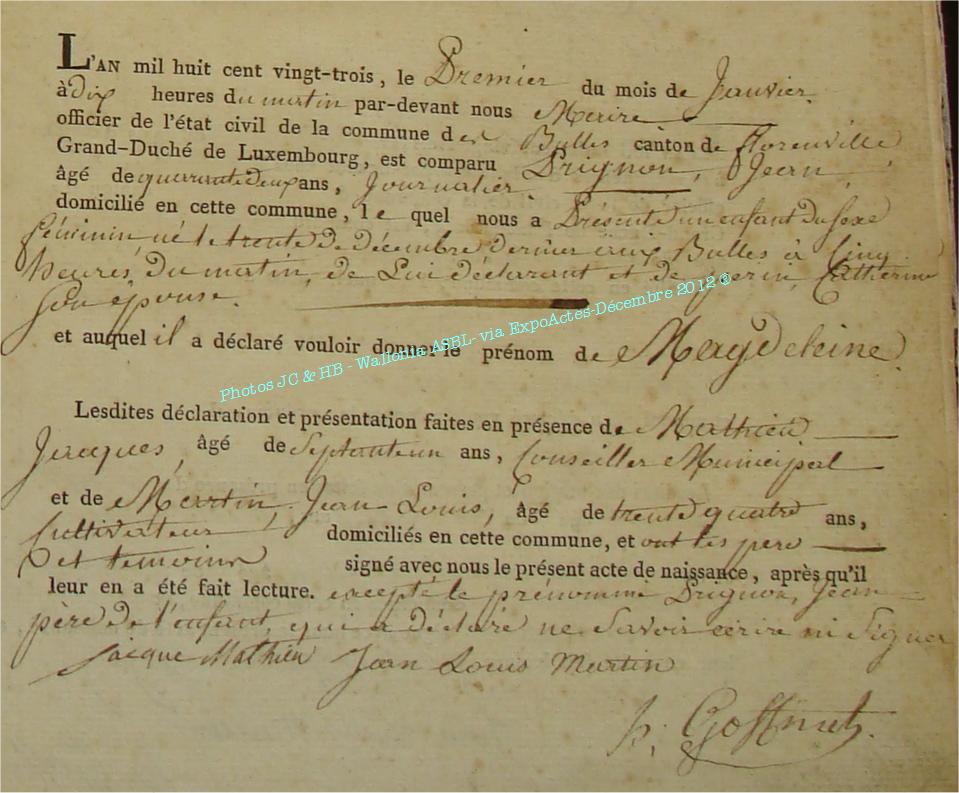 L'AN mil huit cent vingt-trois, le Premier du mois de Janvier
à dix heures du matin par-devant nous Maire
officier de l'état civil de la commune des Bulles canton de florenville
Grand-Duché de Luxembourg, est comparu Prignon, Jean,
âgé de quarante deux ans, Journalier,
domicilié en cette commune, le quel nous a Présenté un enfant du sexe
féminin né le trente de décembre dernier aux Bulles à Cinq
heures du matin, de Lui déclarant et de Catherine
son épouse.
et auquel il a déclaré vouloir donner le prénom de Magdeleine.
Photos JC & HB - Wallonia ASBL- via ExpoActes-Décembre 2012 ®
Lesdites déclaration et présentation faites en présence de Mathieu
Jacques, âgé de Septante un ans, Conseiller Municipal
et de Martin, Jean Louis, âgé de trente quatre ans,
Cultivateur domiciliés en cette commune, et ont les père
et temoins signé avec nous le présent acte de naissance, après qu'il
leur en a été fait lecture. excepté le prénommé Prignon, Jean
père de l'enfant, qui a déclaré ne Savoir écrire ni Signer
Jacque Mathieu Jean Louis Martin